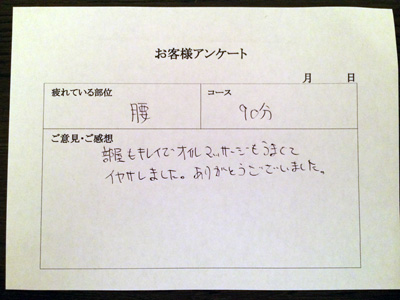 お客様アンケート
月 日
疲れている部位
コース
腰
90分
ご意見・ご感想
部屋もキレイでオイルマッサージもうまくて
イヤサレました。ありがとうございました。